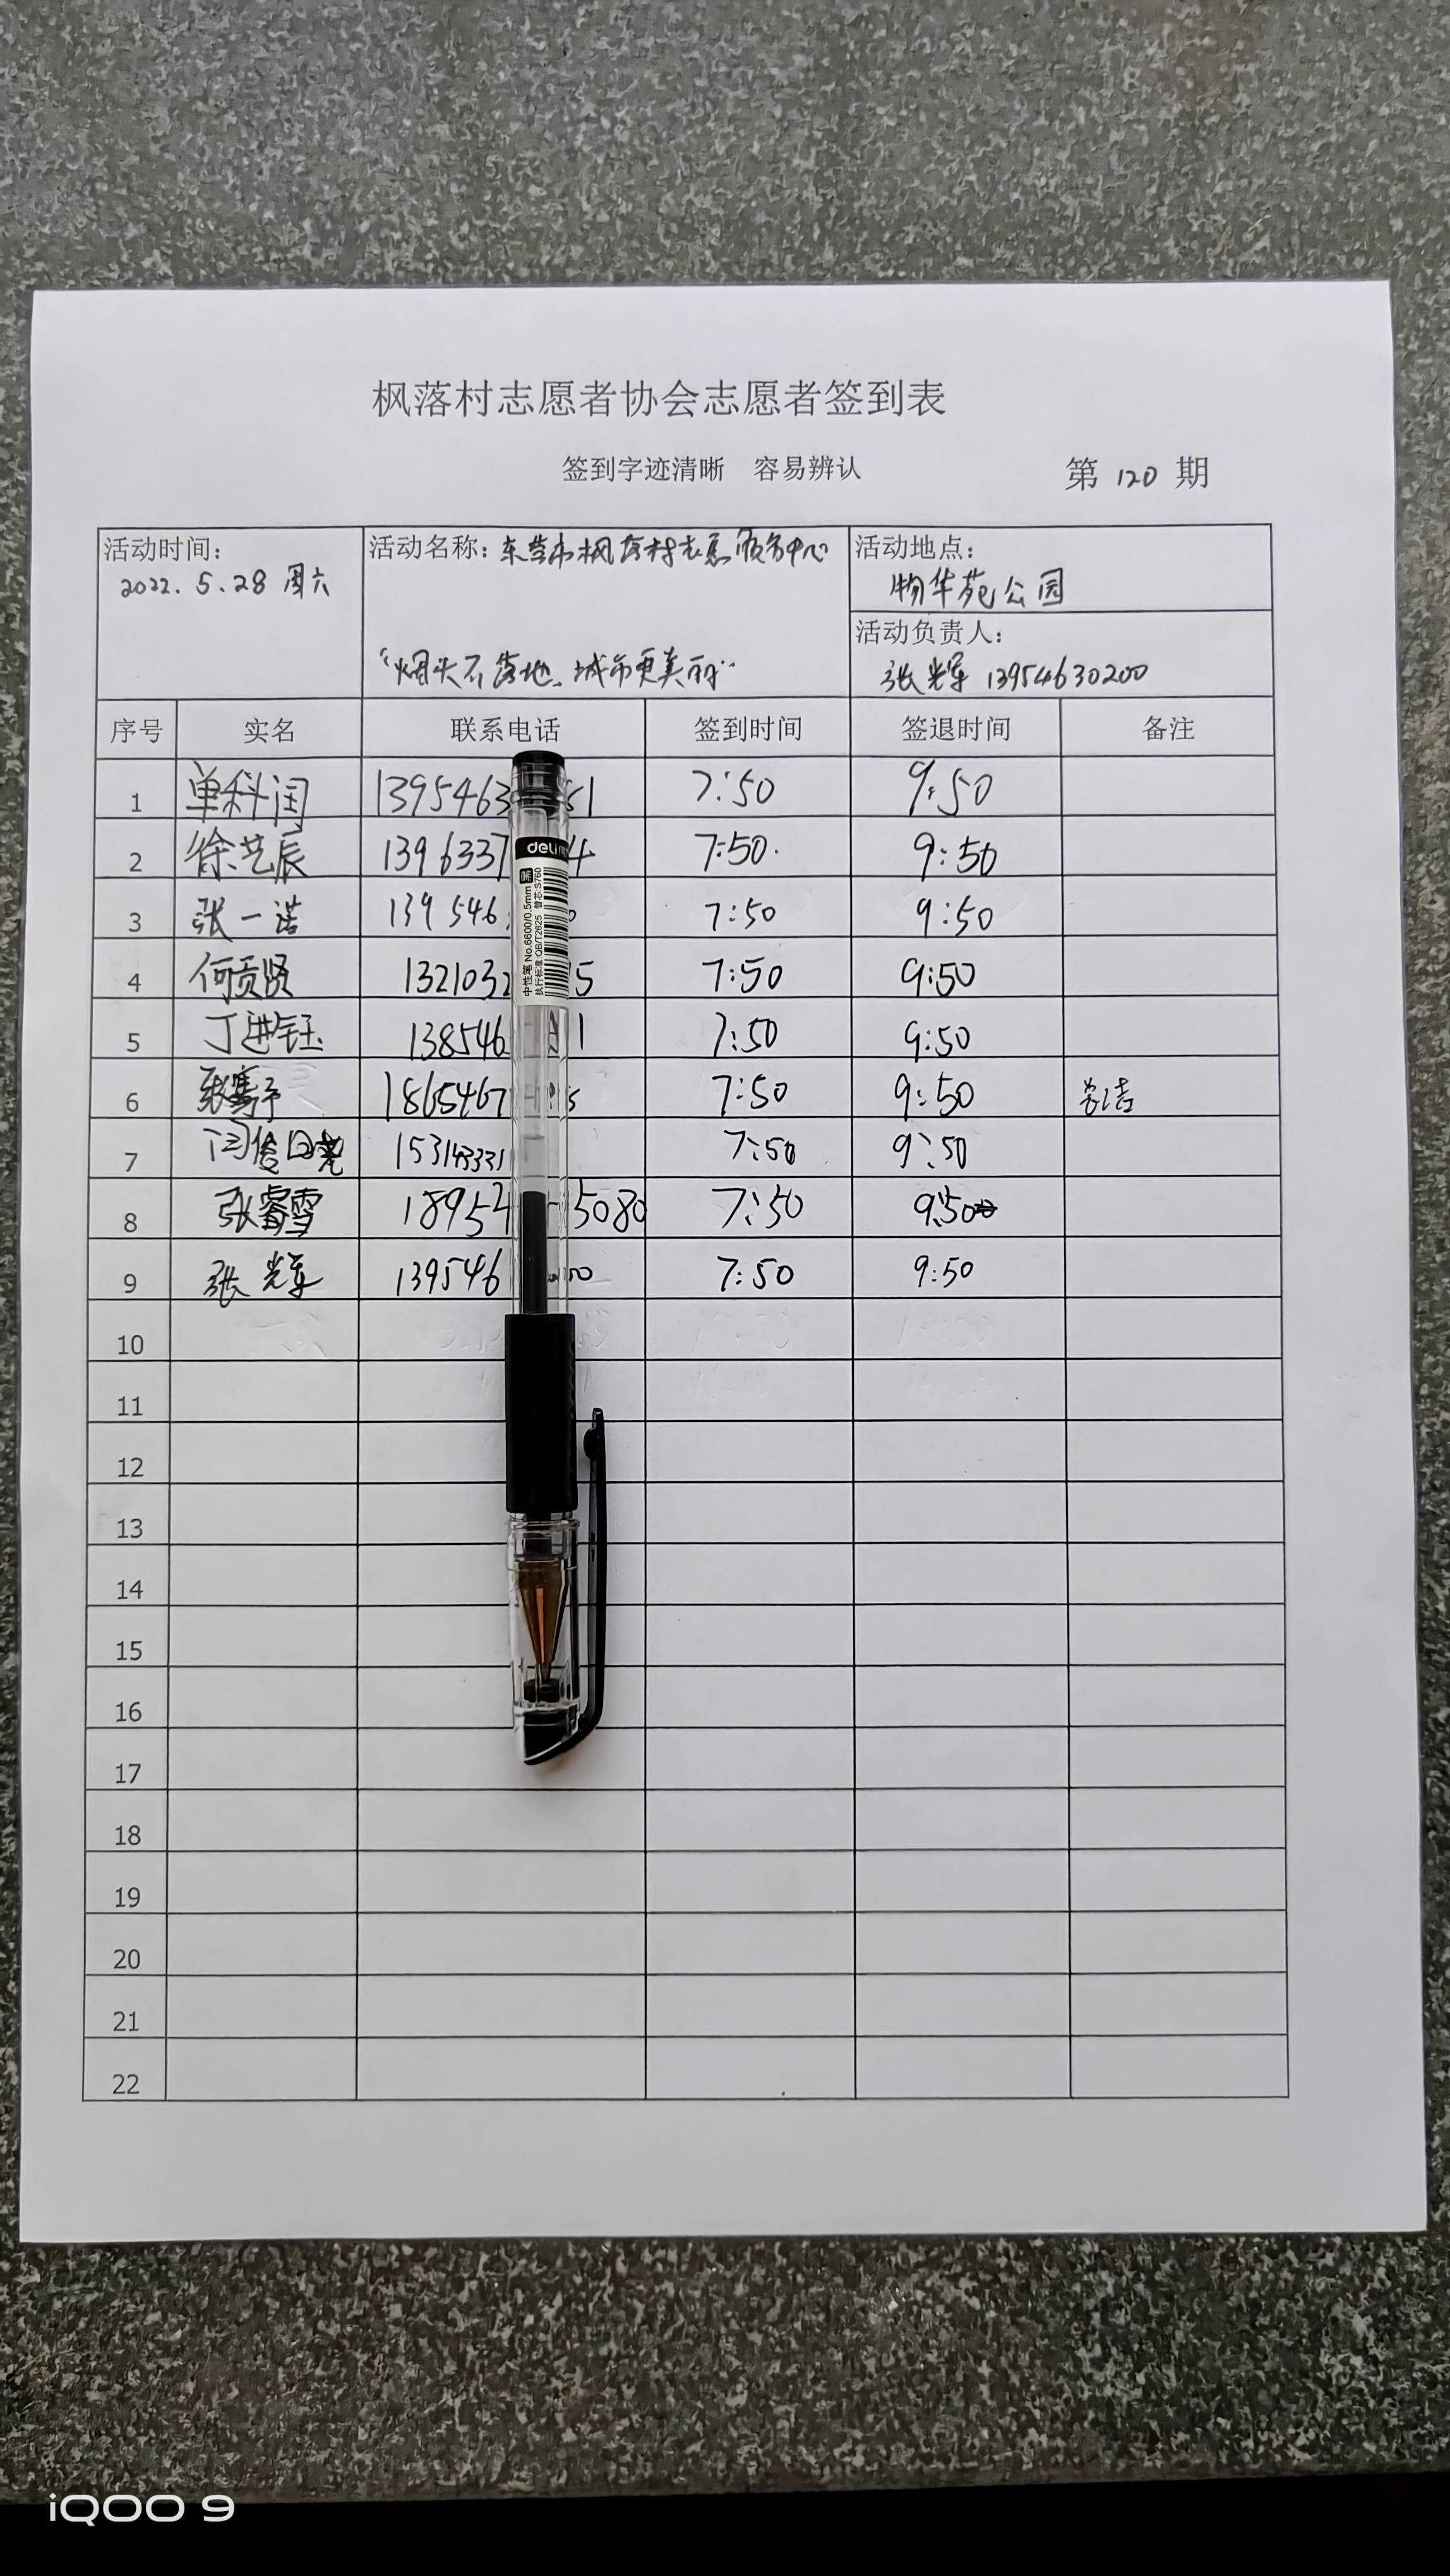 枫落村志愿者协会志愿者签到表
签到字迹清晰 容易辨认 第 120 期
活动时间：
2022.5.28 周六
活动名称：东营市枫落村志愿服务中心
“烟头不落地、城市更美丽”
活动地点：
物华苑公园
活动负责人：
张光军 13954630200
序号 实名 联系电话 签到时间 签退时间 备注
1 单科闰 1395463 51 7:50 9:50
2 徐艺辰 1396337 4 7:50. 9:50
3 张一诺 139546 7:50 9:50
4 何贡贤 132103 5 7:50 9:50
5 丁进钰 138546 1 7:50 9:50
6 1865467 5 7:50 9:50
7 闫 15314333 7:50 9:50
8 张睿雪 1895 5080 7:50 9:50
9 张光军 139546 00 7:50 9:50
10
11
12
13
14
15
16
17
18
19
20
21
22
deli
中性笔 No.6600/0.5mm 黑 替芯:S760
执行标准:QB/T2625
iQOO 9